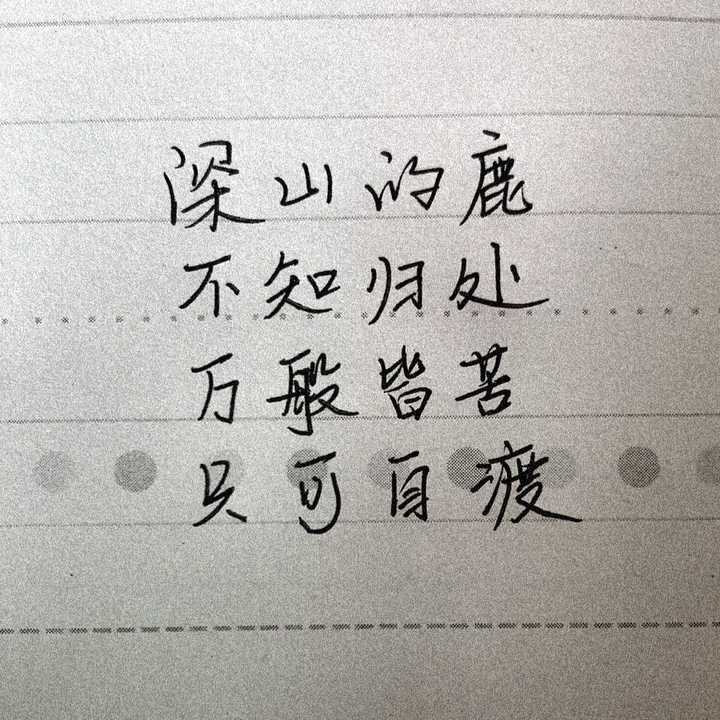 深山的鹿
不知归处
万般皆苦
只可自渡